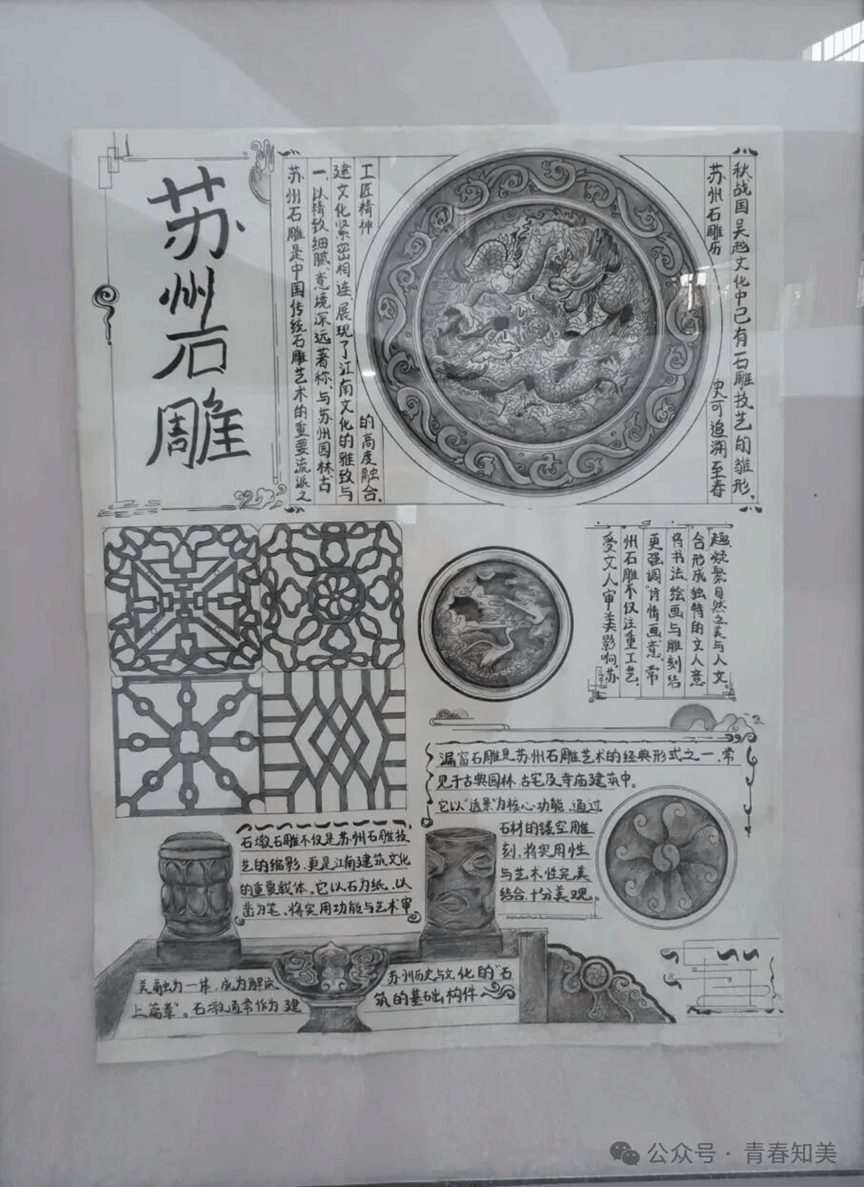 苏州石雕
苏州石雕历
史可追溯至春
秋战国吴越文化中已有石雕技艺的雏形。
苏州石雕是中国传统石雕艺术的重要流派之
一,以精致细腻、意境深远著称,与苏州园林古
建文化紧密相连,展现了江南文化的雅致与
工匠精神
的高度融合。
受文人审美影响,苏
州石雕不仅注重工艺,
更强调"诗情画意",常
将书法绘画与雕刻结
合形成独特的文人意
趣,凝聚自然之美与人文。
漏窗石雕是苏州石雕艺术的经典形式之一,常
见于古典园林、古宅及寺庙建筑中。
它以"透景"为核心功能,通过
石材的镂空雕
刻,将实用性
与艺术性完美
结合,十分美观。
石墩石雕不仅是苏州石雕技
艺的缩影,更是江南建筑文化
的重要载体。它以石为纸,以
凿为笔,将实用功能与艺术审
美融为一体,成为解读
苏州历史与文化的"石
上篇章"。石墩通常作为建
筑的基础构件
公众号·青春知美